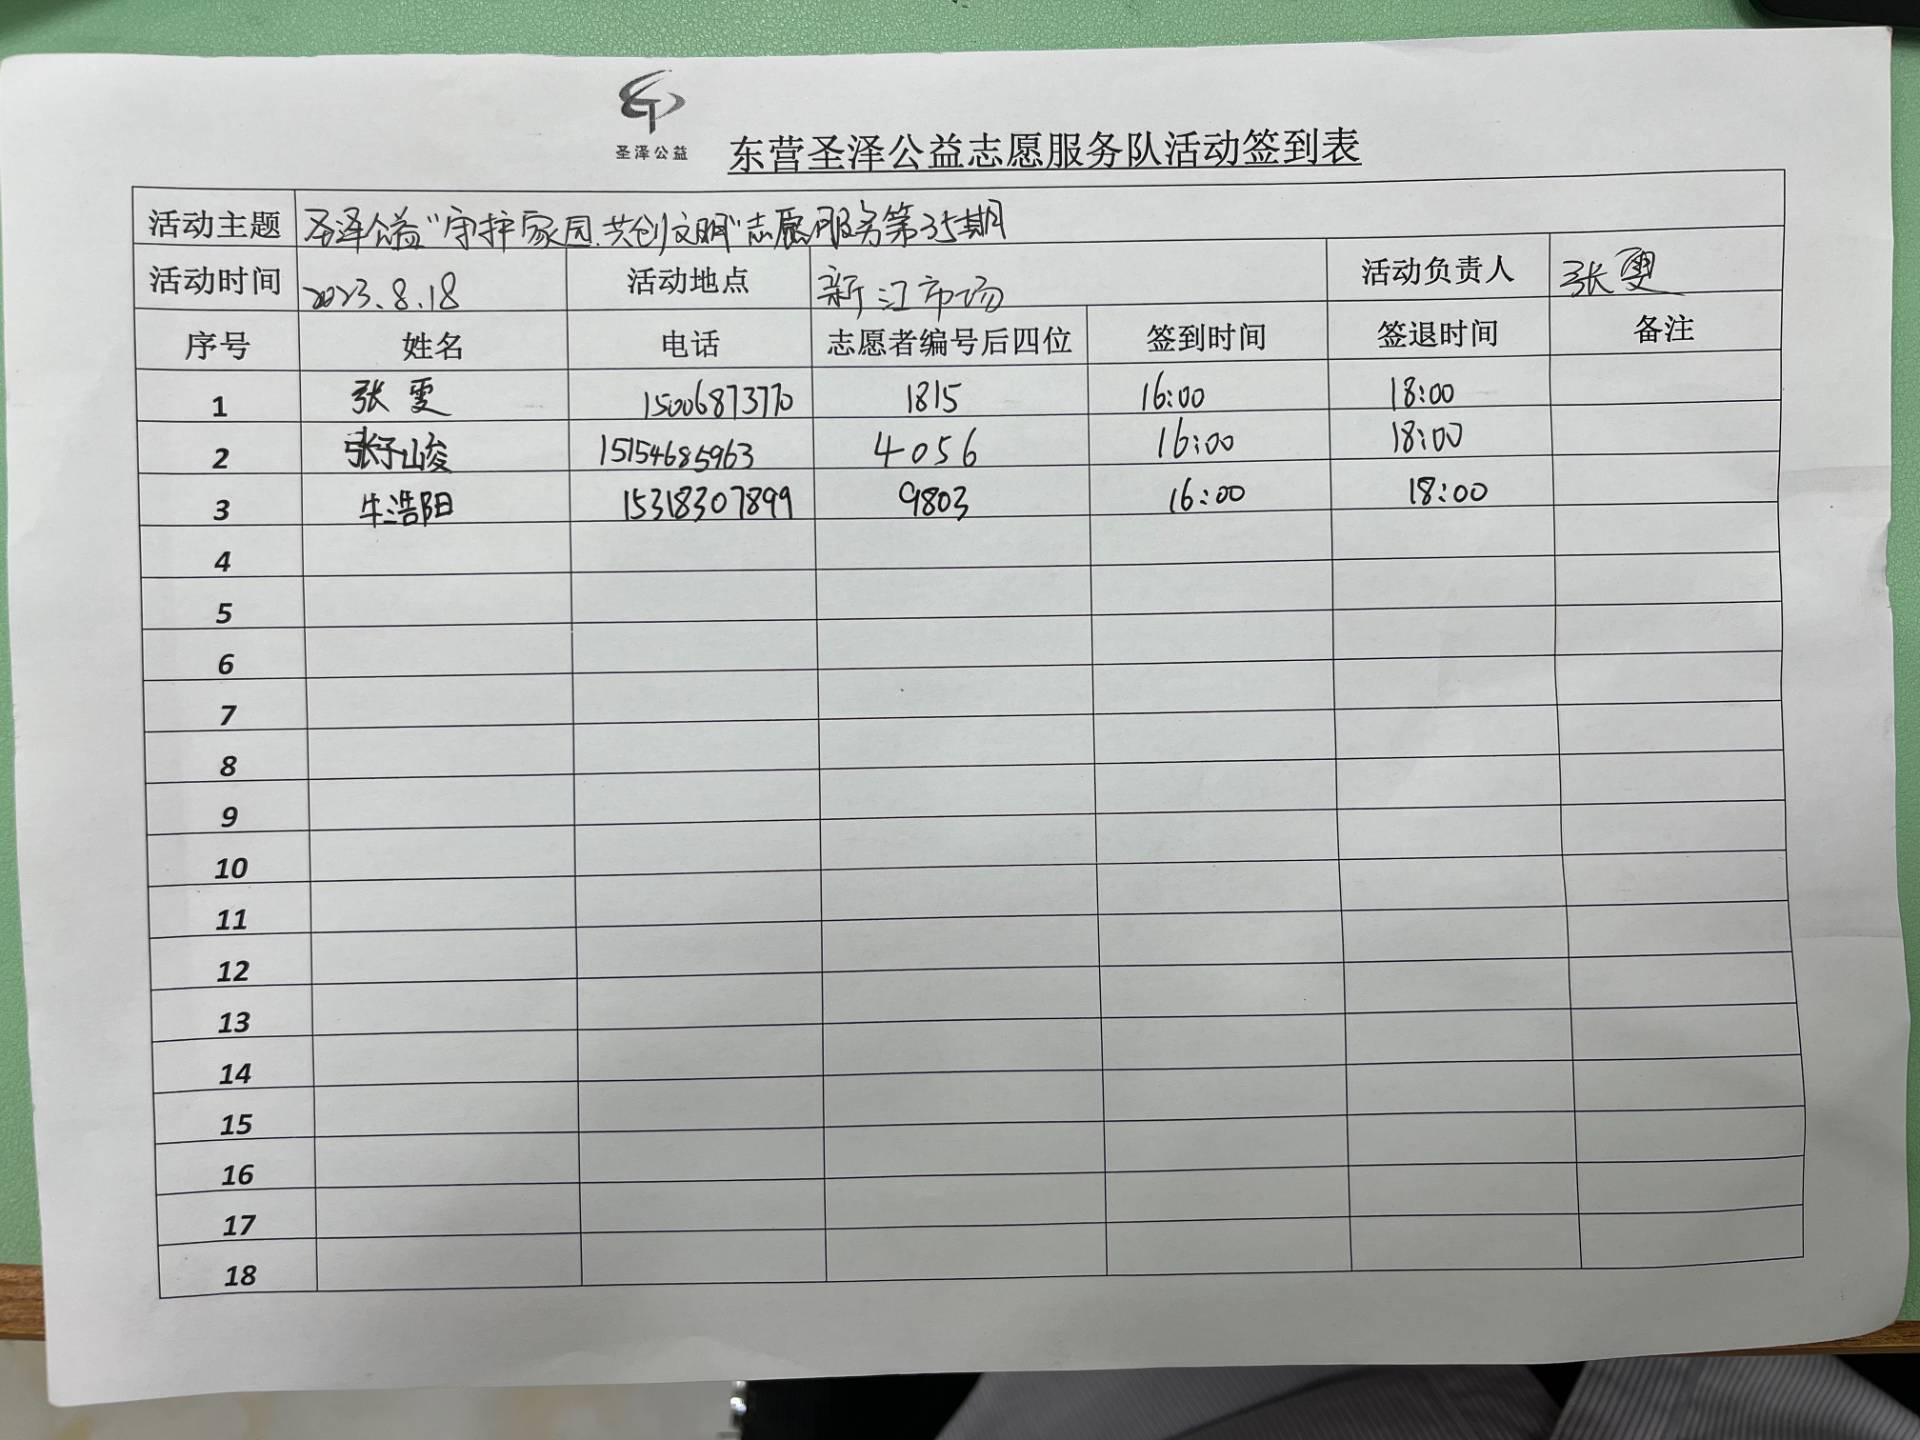 圣泽公益
东营圣泽公益志愿服务队活动签到表
活动主题 圣泽公益“守护家园.共创文明”志愿服务第35期
活动时间 2023.8.18 活动地点 新江市场 活动负责人 张雯
序号 姓名 电话 志愿者编号后四位 签到时间 签退时间 备注
1 张雯 15006873770 1815 16:00 18:00
2 张子峻 15154685963 4056 16:00 18:00
3 牛浩阳 15318307899 9803 16:00 18:00
4
5
6
7
8
9
10
11
12
13
14
15
16
17
18